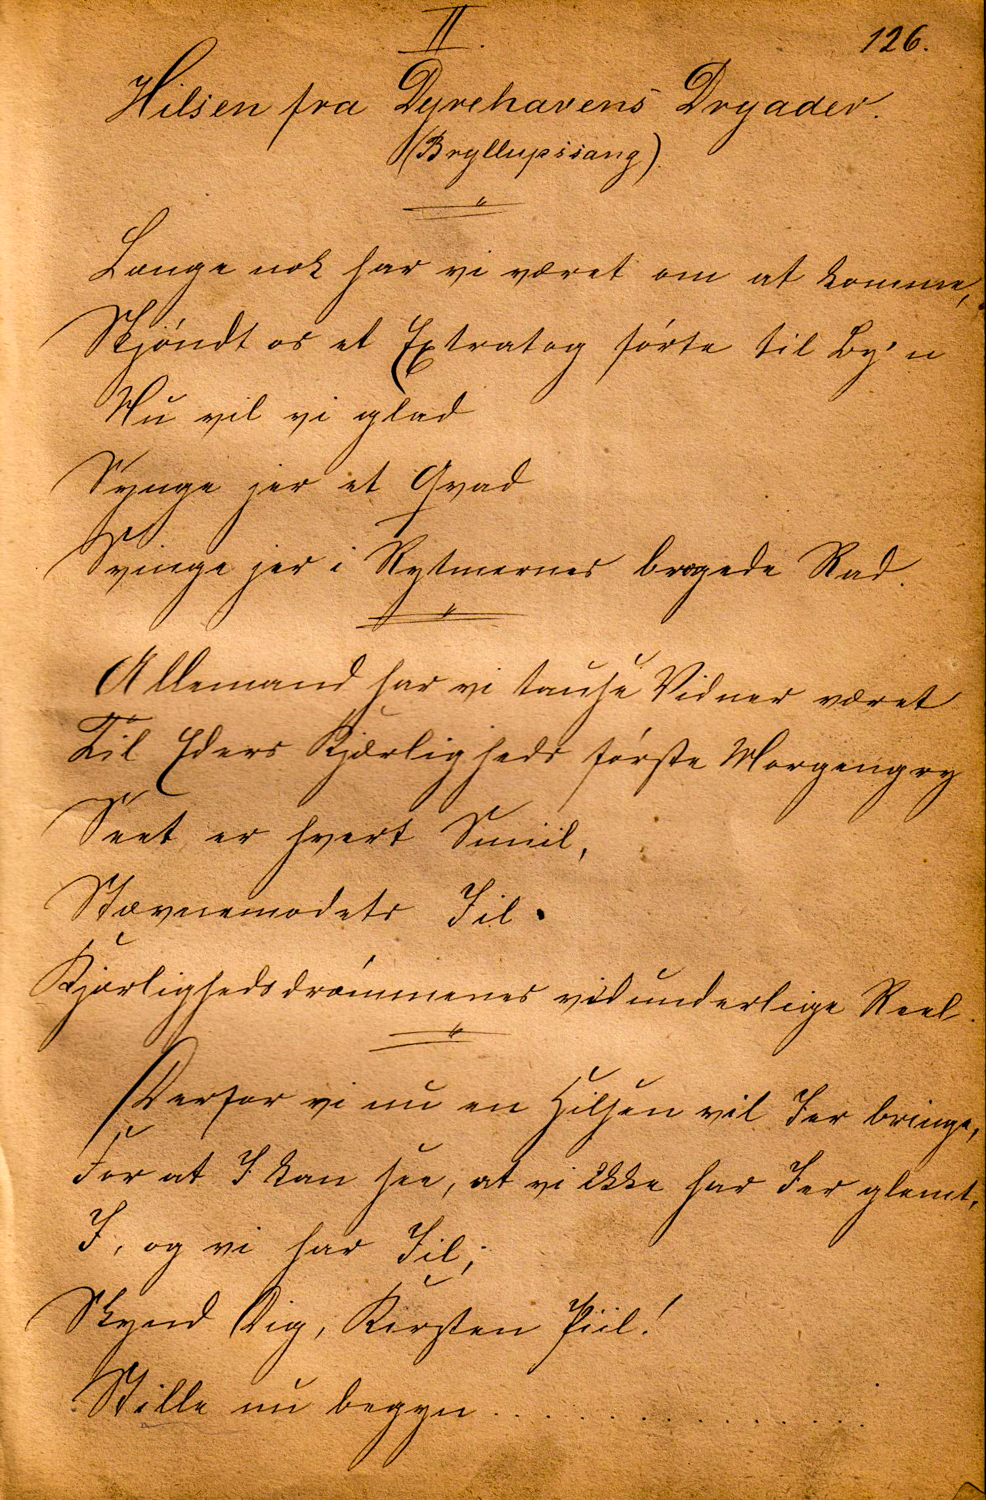 II.
126.
Hilsen fra Dyrehavens Dryader.
(Bryllupssang)
Længe nok har vi været om at komme,
Skjøndt os et Extratog førte til By'n
Nu vil vi glad
Synge jer et Qvad
Svinge jer i Rytmernes brogede Rad.
Allemand har vi tause Vidner været
Til Eders Kjærligheds første Morgengry
Seet er hvert Smiil,
Stævnemødets Iil.
Kjærlighedsdrømmenes vidunderlige Reel.
Derfor vi nu en Hilsen vil Jer bringe,
For at I kan see, at vi ikke har Jer glemt,
I, og vi har Iil;
Skynd Dig, Kirsten Piil!
Stille nu begyn . . . . . . . . . . . .